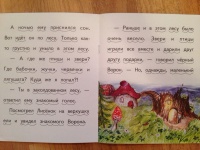 А летом ему приснился сон.
Вот идёт он по лесу. Только как-то
грустно и уныло в этом лесу.
— А где же птицы и звери?
Где бабочки, жучки, паучки и
лягушата? Куда же я попал?!
— Ты в заколдованном лесу, —
ответил ему знакомый голос.
Посмотрел Лисёнок на верхушку
ели и увидел знакомого Ворона.
— Раньше и в этом лесу было
очень весело. Звери и птицы
играли все вместе и дарили друг
другу подарки, — говорил чёрный
Ворон. — Но, однажды,